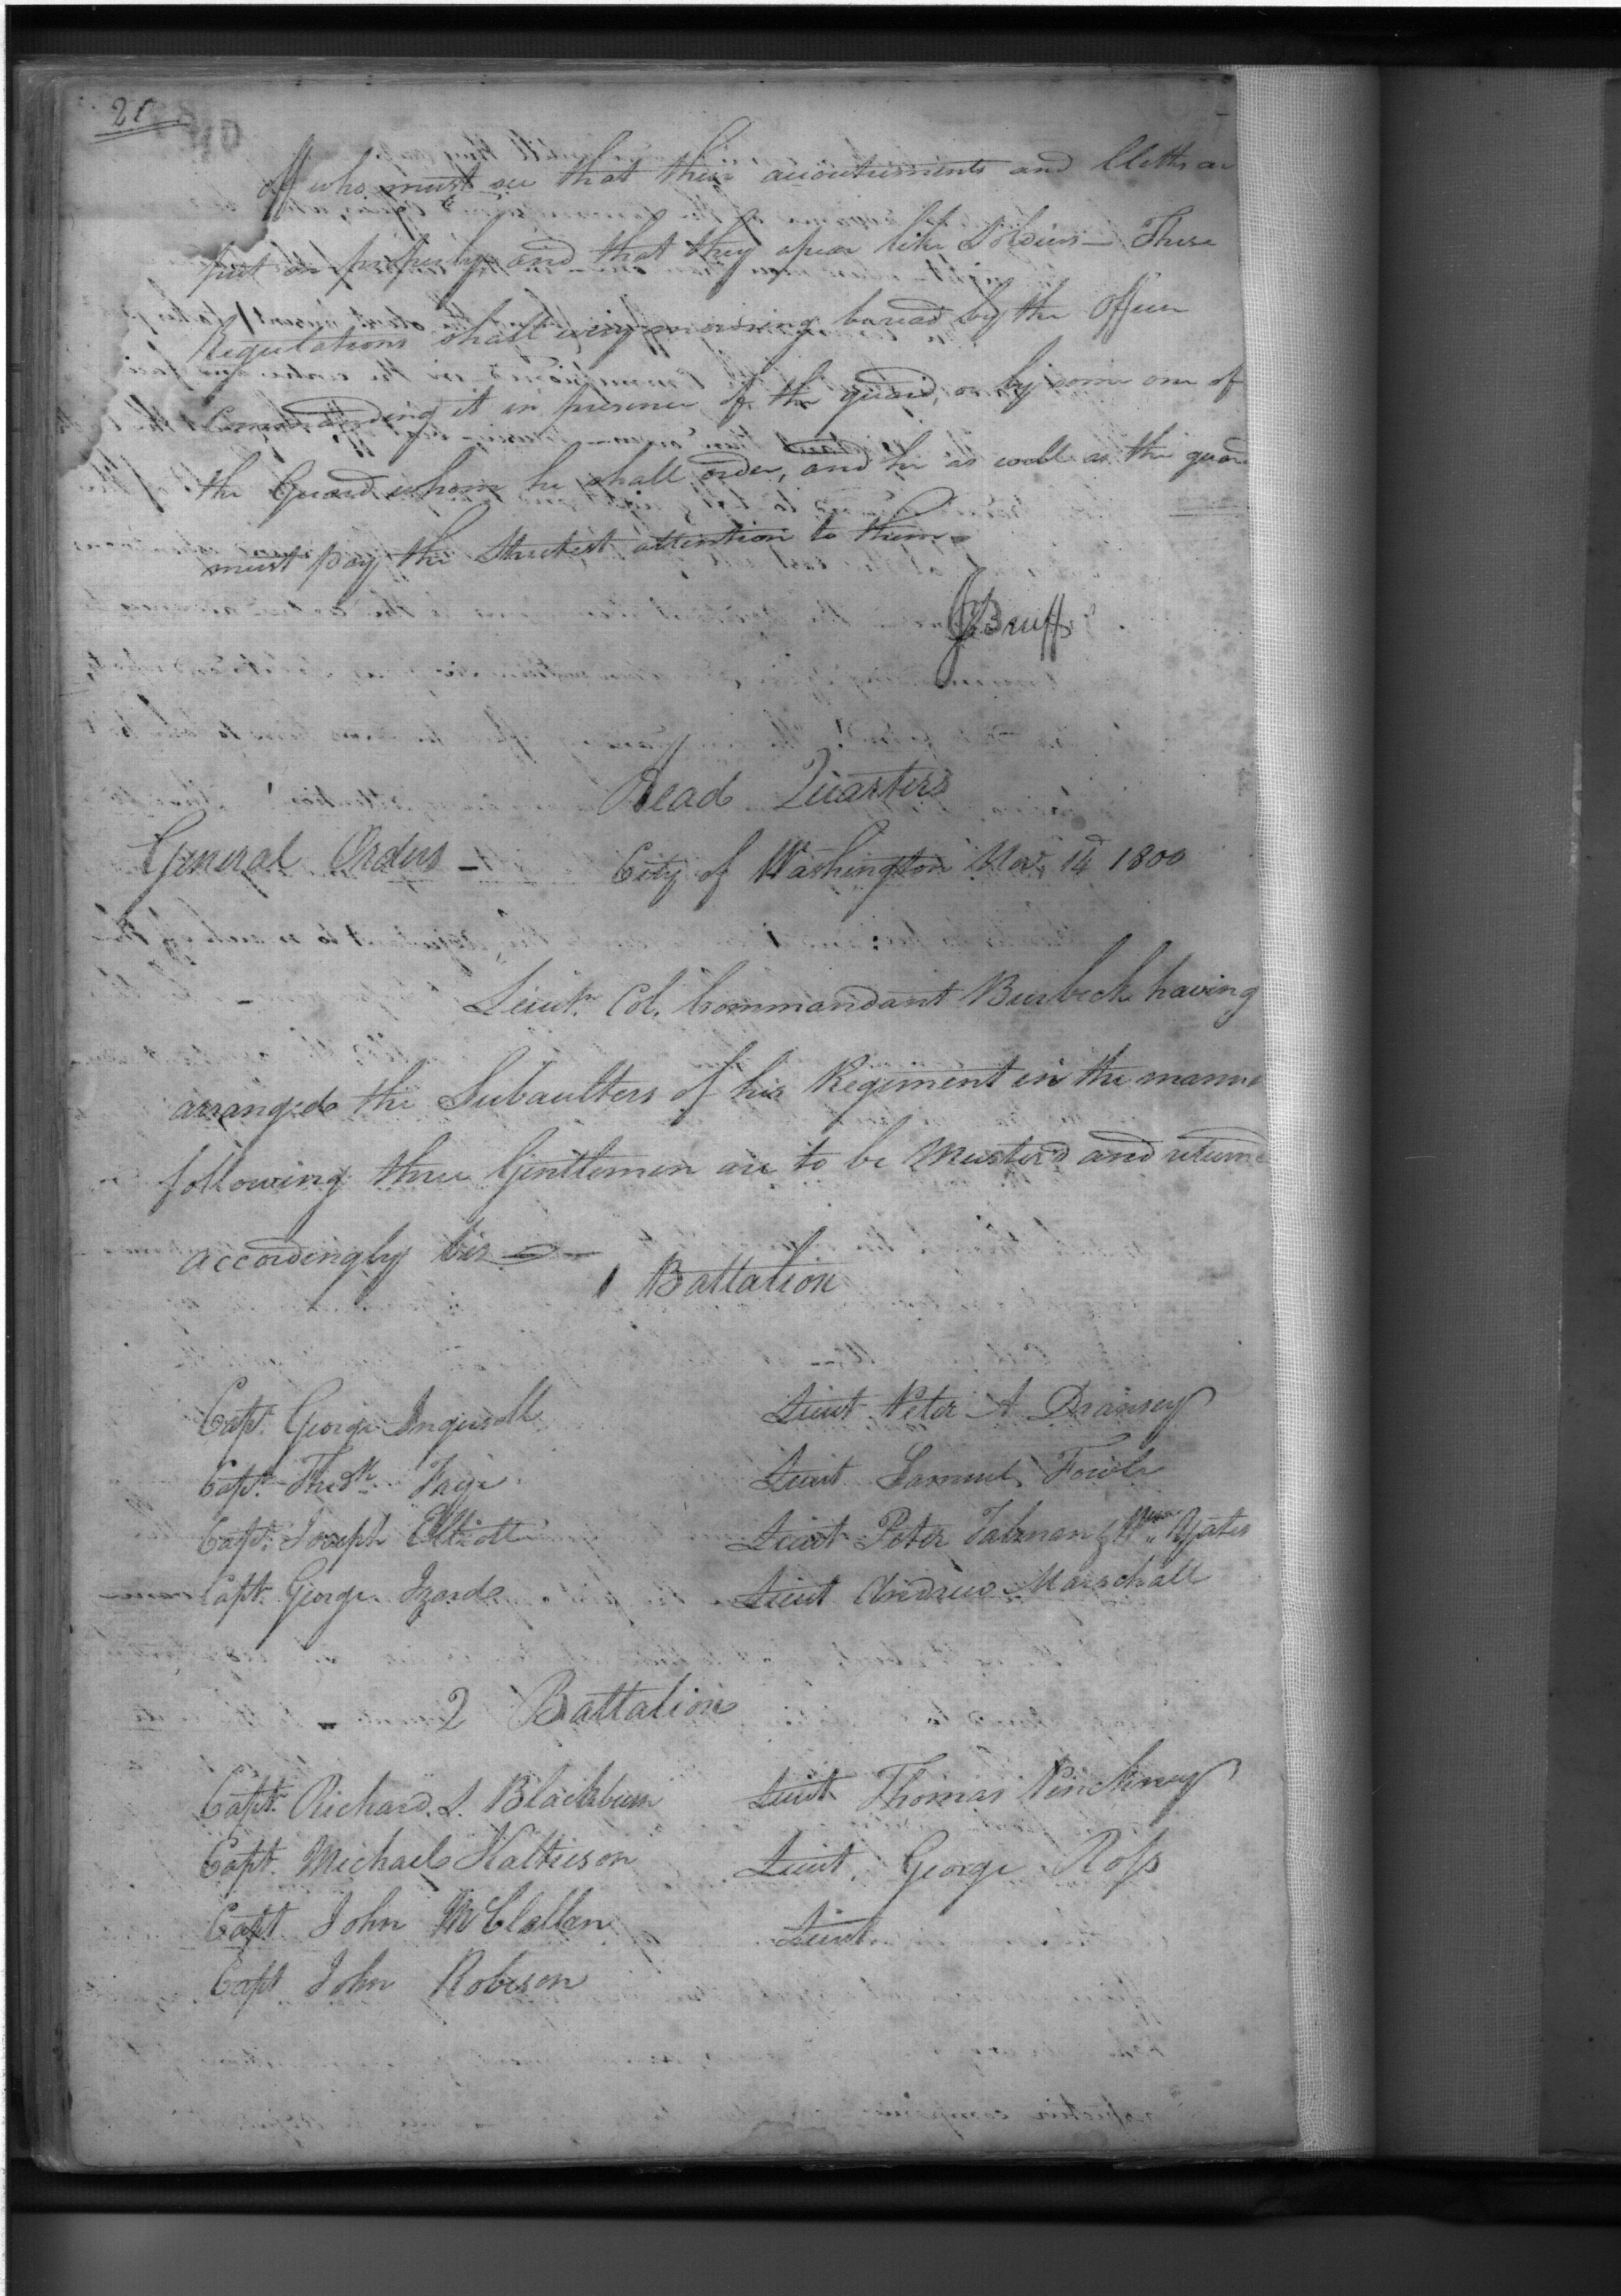 20
off who must see that their accoutrements and Cloths are
put on properly and that they apear like Soldiers — These
Regulations shall every morning be read by the Officer
Commanding it in presence of the guard, or by some one of
the Guard whom he shall order, and he as well as the guard
must pay the Strictest attention to them
J Bruff
Head Quarters
General Orders — City of Washington Nov. 14 1800
Lieut. Col. Commandant Burbeck having
arranged the Subaulters of his Regiment in the manner
following three Gentlemen are to be Musterd and returned
accordingly viz —
1 Battalion
Capt. George Ingersoll Lieut Peter A Dransey
Capt. Fredk. Faye Lieut Samuel Fowle
Capt. Joseph Elliott Lieut Peter Talman & Wm. Yates
Capt. George Izard Lieut Andrew Marschall
2 Battalion
Capt. Richard. S. Blackburn Lieut Thomas Pinckney
Capt. Michael Kaltieson Lieut. George Ross
Capt John McClallen Lieut.
Capt John Robeson